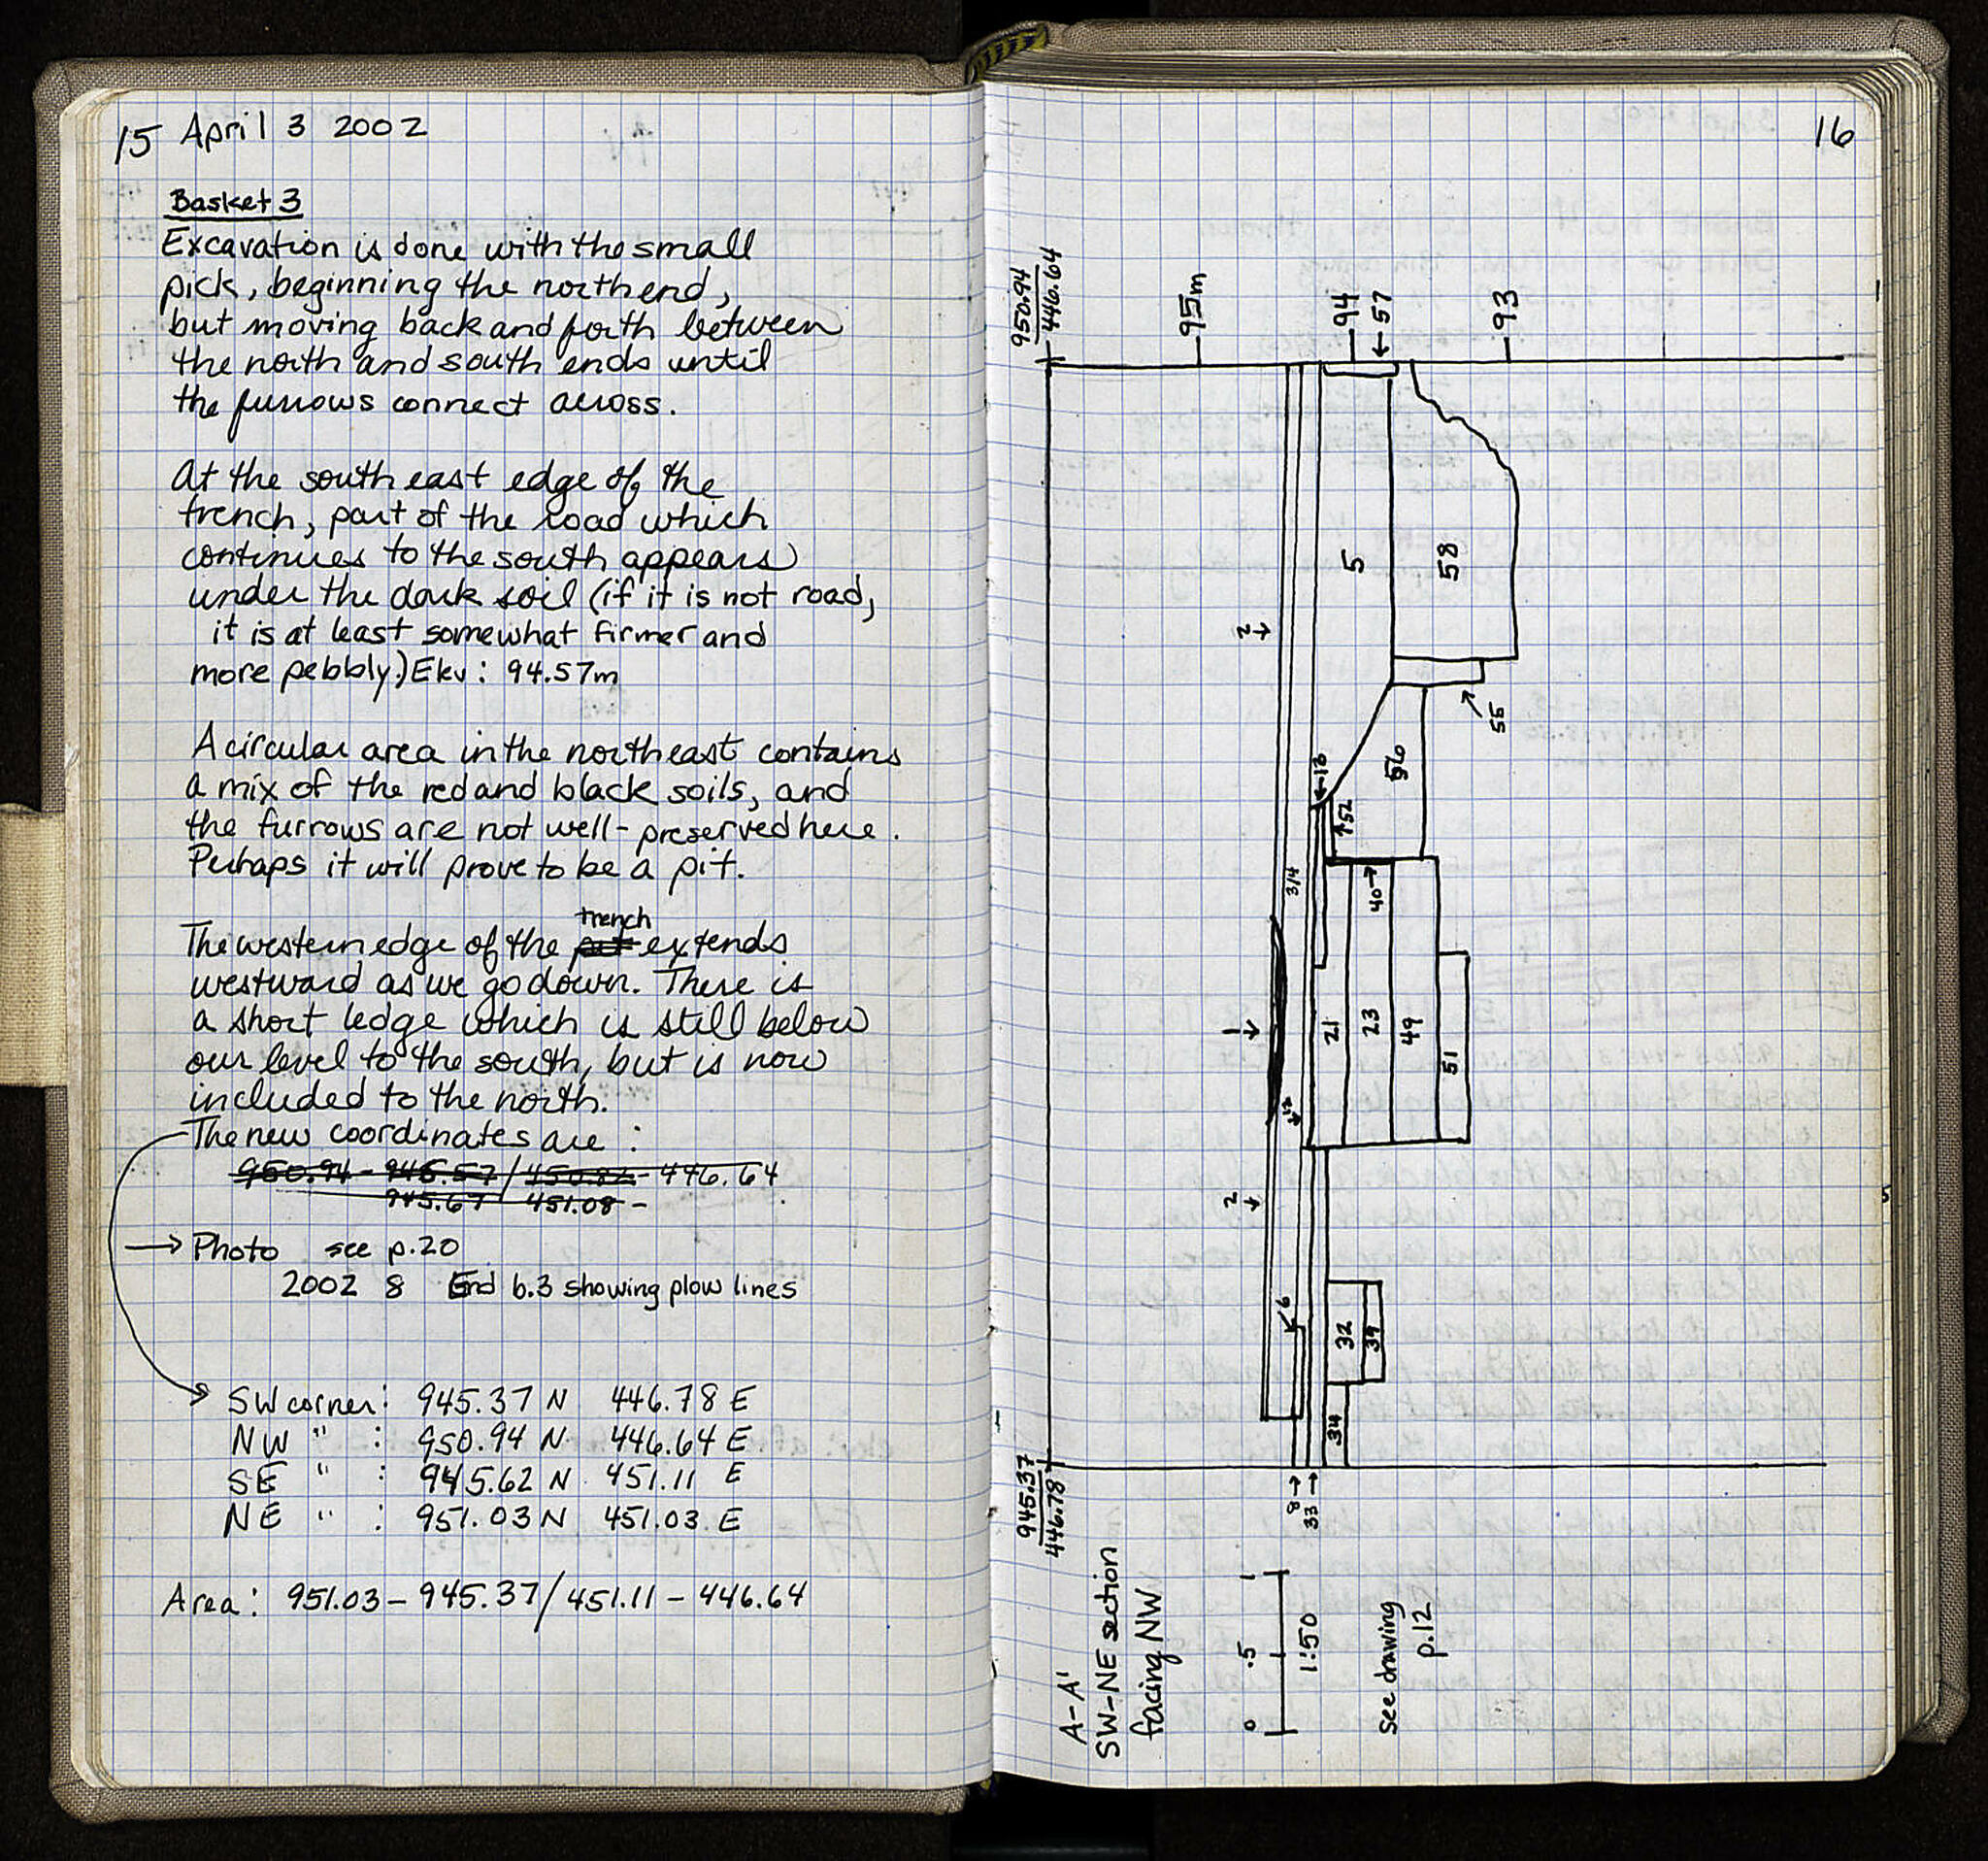 15 April 3 2002
Basket 3
Excavation is done with the small
pick, beginning the north end,
but moving back and forth between
the north and south ends until
the furrows connect across.
At the southeast edge of the
trench, part of the road which
continues to the south appears
under the dark soil (if it is not road,
it is at least somewhat firmer and
more pebbly.) Elev: 94.57m
A circular area in the northeast contains
a mix of the red and black soils, and
the furrows are not well-preserved here.
Perhaps it will prove to be a pit.
trench
The western edge of the extends
westward as we go down. There is
a short ledge which is still below
our level to the south, but is now
included to the north.
The new coordinates are :
950.94 - 945.57 / 450.82 - 446.64
945.67 451.08 -
→ Photo see p.20
2002 8 End b.3 showing plow lines
SW corner: 945.37 N 446.78 E
NW " : 950.94 N 446.64 E
SE " : 945.62 N 451.11 E
NE " : 951.03 N 451.03 E
Area: 951.03 - 945.37 / 451.11 - 446.64
16
950.94
446.64
95m
94
57
93
5
58
2
55
56
13
52
3/4
40
21
23
49
51
1
12
2
6
32
39
34
945.37
446.78
8
33
A-A'
SW-NE section
facing NW
0 .5 1
1:50
see drawing
p.12